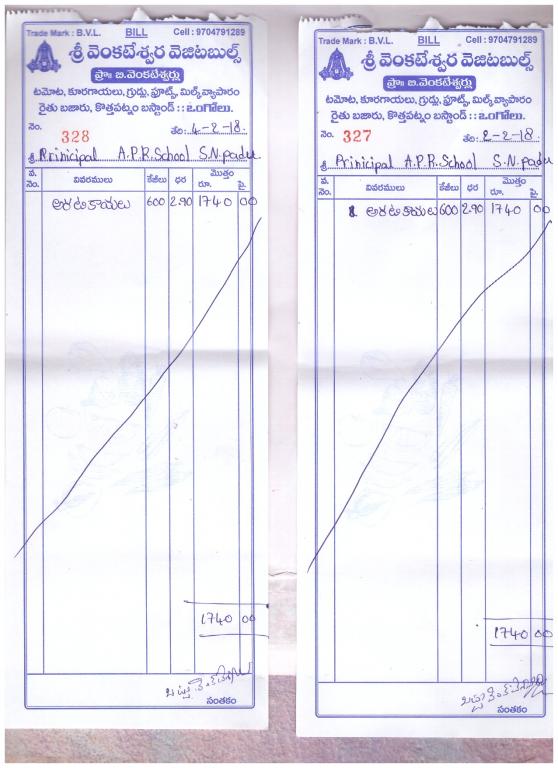 Trade Mark : B.V.L. BILL Cell : 9704791289
శ్రీ వెంకటేశ్వర వెజిటబుల్స్
ప్రొః బి.వెంకటేశ్వర్లు
టమోట, కూరగాయలు, గ్రుడ్లు, ఫ్రూట్స్, మిల్క్ వ్యాపారం
రైతు బజారు, కొత్తపట్నం బస్టాండ్ : : ఒంగోలు.
నెం. 328 తేది: 4-2-18.
శ్రీ Prinicipal A.P.R.School S.N.padu
వ. నెం. వివరములు కేజీలు ధర మొత్తం రూ. పై.
అరటికాయలు 600 2.90 1740 00
1740 00
సంతకం
Trade Mark : B.V.L. BILL Cell : 9704791289
శ్రీ వెంకటేశ్వర వెజిటబుల్స్
ప్రొః బి.వెంకటేశ్వర్లు
టమోట, కూరగాయలు, గ్రుడ్లు, ఫ్రూట్స్, మిల్క్ వ్యాపారం
రైతు బజారు, కొత్తపట్నం బస్టాండ్ : : ఒంగోలు.
నెం. 327 తేది: 2-2-18.
శ్రీ Prinicipal A.P.R.School S.N.padu
వ. నెం. వివరములు కేజీలు ధర మొత్తం రూ. పై.
1. అరటికాయలు 600 2.90 1740 00
1740 00
సంతకం